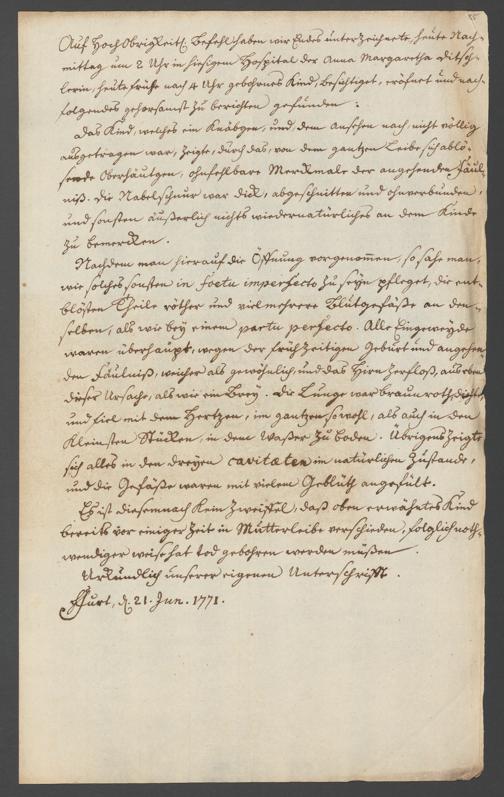 Auf Hoch Obrigkeitl. Befehl haben wir Endes unterzeichnete, heute Nach-
mittag um 2 Uhr in hiesigem Hospital der Anna Margaretha
lerin, heute frühe nach 4 Uhr gebohrnes Kind, besichtiget, eröfnet und nach-
folgendes gehorsamst zu berichten gefunden:
Das Kind, welches ein Knäbgen, und, dem ansehen nach, nicht völlig
ausgetragen war, zeigte, durch das, von dem gantzen Leibe, sich ablö-
sende Oberhäutgen, ohnfehlbare Merckmale der angehenden Fäul-
niß. Die Nabelschnur war dick, abgeschnitten und ohnverbunden,
und sonsten äußerlich nichts wiedernatürliches an dem Kinde
zu bemercken.
Nachdem man hierauf die Öffnung vorgenommen, so sahe man,
wie solches sonsten in foetu imperfecto zu seyn pfleget, die ent-
blösten Theile röther und viel mehrere Blutgefäße an den-
selben, als wie bey einem partu perfecto. Alle Eingeweyde
waren überhaupt, wegen der frühzeitigen Geburt und angehen-
den Fäulniß, weicher als gewöhnlich, und das Hirn zerfloß, aus eben
dieser Ursache, als wie ein Brey. Die Lunge war braunroth, dicht
und fiel mit dem Hertzen, im gantzen sowohl, als auch in den
kleinsten Stücken, in dem Waßer zu boden. Übrigens zeigte
sich alles in den dreyen cavitæten im natürlichen Zustande,
und die Gefäße waren mit vielem Geblüth angefült.
Es ist diesemnach kein Zweiffel, daß oben erwähntes Kind
bereits vor einiger Zeit in Mutterleibe verschieden, folglich noth-
wendiger weise hat tod gebohren werden müßen.
Urkundlich unserer eigenen Unterschrifft.
Ffurt, d. 21. Jun. 1771.